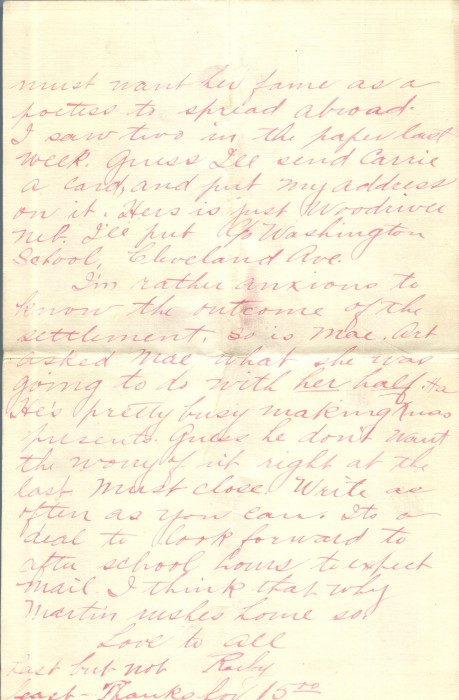 must want her fame as a
poetess to spread abroad.
I saw two in the paper last
week. Guess I'll send Carrie
a card, and put my address
on it. Hers is just Woodriver
Neb. I'll put c/o Washington
School, Cleveland Ave.
I'm rather anxious to
know the outcome of the
settlement. So is Mae. Art
asked Mae what she was
going to do with her half. Ha
He's pretty busy making Xmas
presents. Guess he don't want
the worry of it right at the
last. Must close. Write as
often as you can. Its a
deal to look forward to
after school hours to expect
mail. I think that why
Martin rushes home so.
Love to all
Last but not Ruby
least - Thanks for 15.00